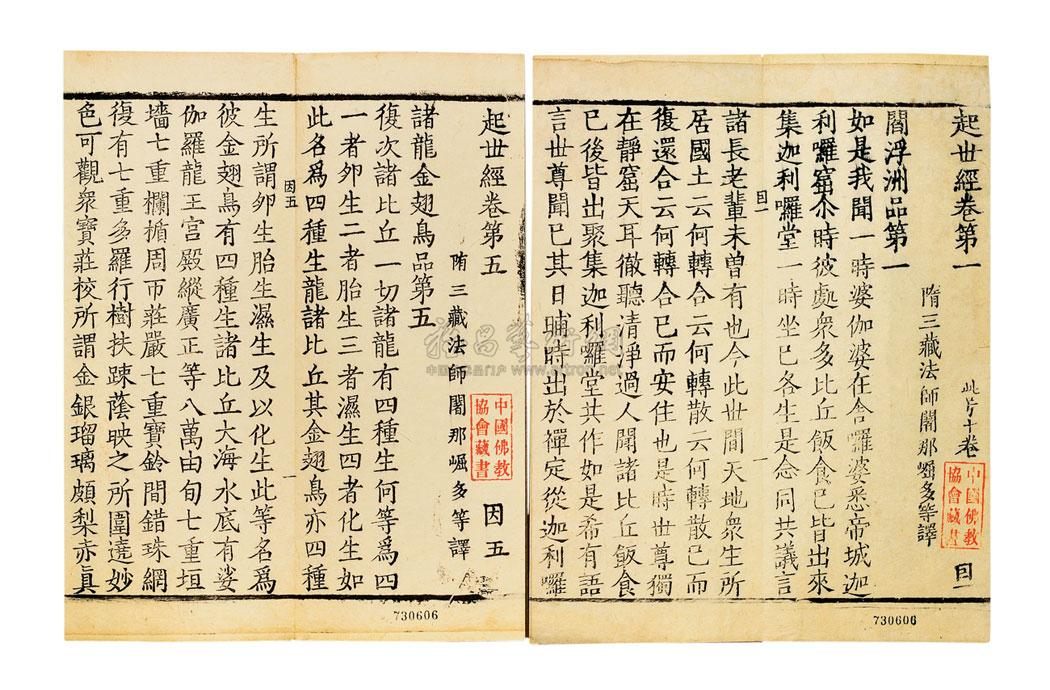 起世經卷第一
此片十卷
因一
隋三藏法師闍那崛多等譯
中國佛教
協會藏書
閻浮洲品第一
如是我聞一時婆伽婆在舎囉婆悉帝城迦
利囉窟尒時彼處衆多比丘飯食已皆出來
集迦利囉堂一時坐已各生是念同共議言
因一
一
諸長老輩未曽有也今此世間天地衆生所
居國土云何轉合云何轉散云何轉散已而
復還合云何轉合已而安住也是時世尊獨
在静窟天耳徹聽清淨過人聞諸比丘飯食
已後皆出聚集迦利囉堂共作如是希有語
言世尊聞已其日晡時出於禪定從迦利囉
730606
起世經卷第五
因五
隋三藏法師闍那崛多等譯
中國佛教
協會藏書
諸龍金翅鳥品第五
復次諸比丘一切諸龍有四種生何等爲四
一者卵生二者胎生三者濕生四者化生如
此名爲四種生龍諸比丘其金翅鳥亦四種
因五
一
生所謂卵生胎生濕生及以化生此等名爲
彼金翅鳥有四種生諸比丘大海水底有娑
伽羅龍王宫殿縱廣正等八萬由旬七重垣
墻七重欄楯周帀莊嚴七重寶鈴間錯珠網
復有七重多羅行樹扶踈蔭映之所圍遶妙
色可觀衆寶莊校所謂金銀瑠璃頗梨赤真
730606
雅昌藝術網